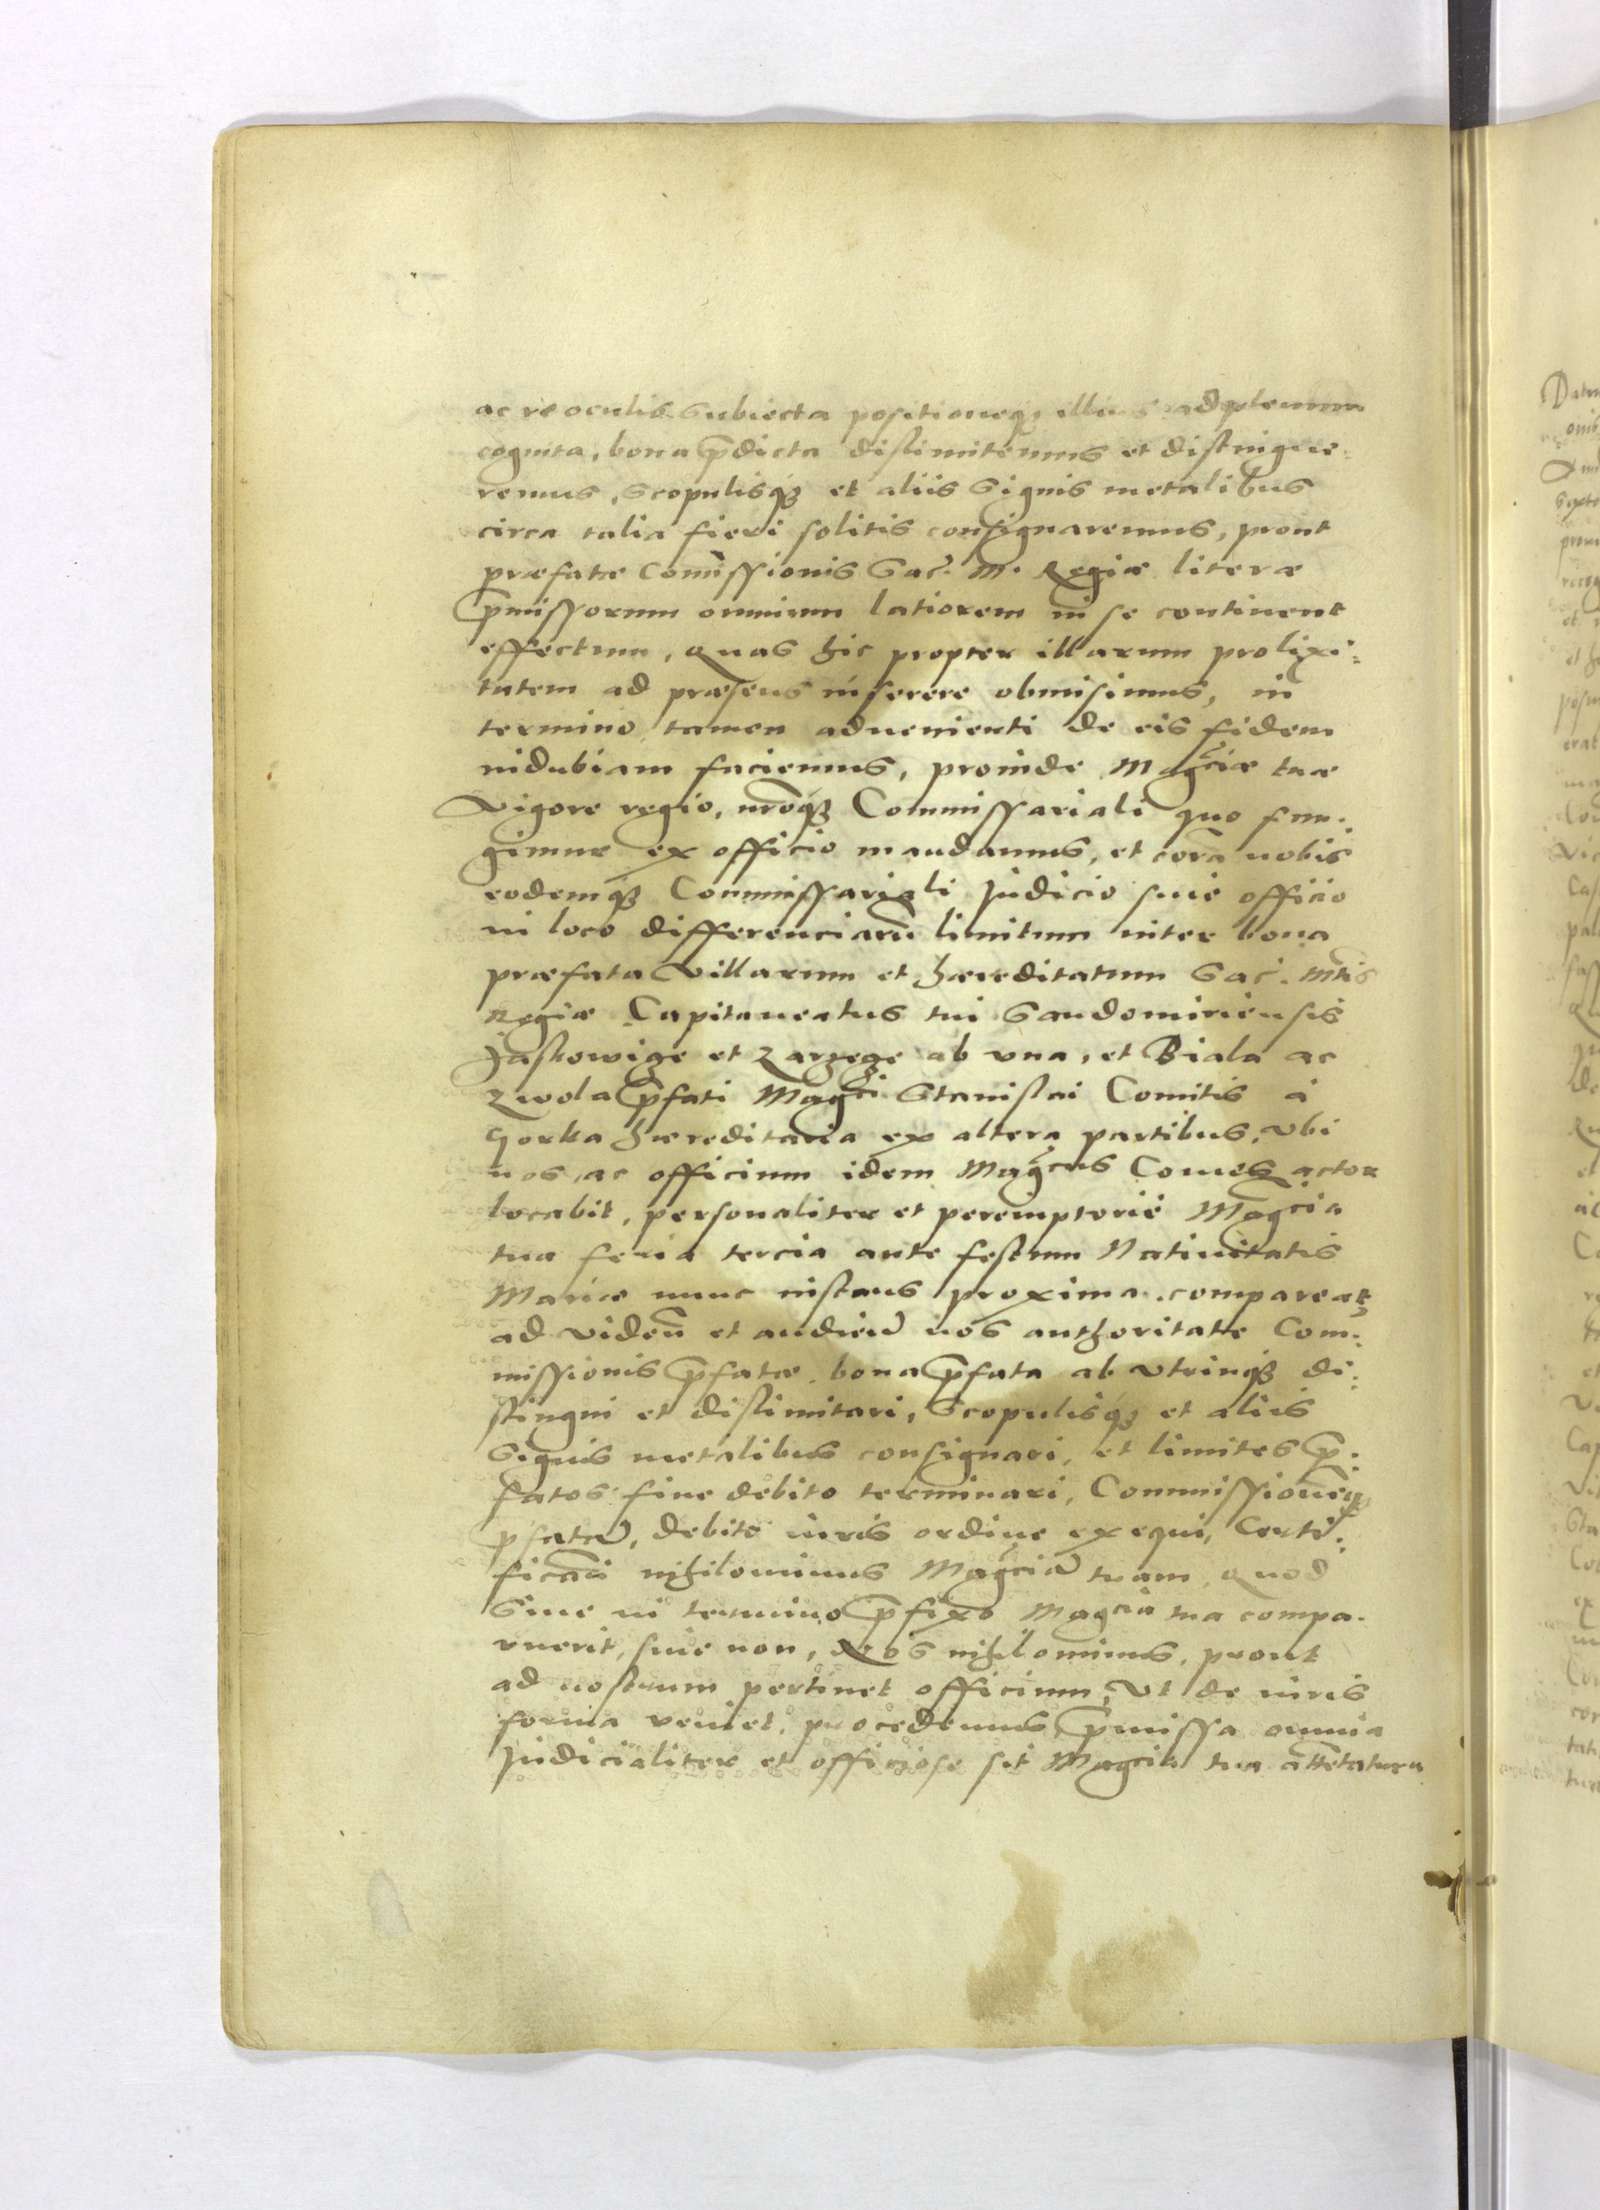 ac re oculis subiecta positioneq3 illius ad plenum
cognita, bona p̄dicta dislimitemus et distingue=
remus, scopulisq3 et aliis signis metalibus
circa talia fieri solitis consignaremus, prout
præfatæ Com̄issionis Sac. M. Regiæ literæ
p̄missorum omnium latiorem in se continent
effectum, quas hic propter illarum prolixi=
tatem ad præsens inserere obmisimus, in
termino tamen aduenienti de eis fidem
indubiam faciemus, proinde Mag̃ciæ tuæ
Vigore regio, nr̄oq3 Commissariali quo fun=
gimur ex officio mandamus, et corā nobis
eodemq3 Commissariali Judicio siue officio
in loco differenciarū limitum inter bona
præfata Villarum et hæreditatum Sac. Mtis
Regiæ Capitaneatus tui Sandomiriensis
Jaskowige et Zarzege ab vna, et Biala ac
Zwola p̄fati Mag̃ci Stanislai Comitis à
Gorka hæreditaria ex altera partibus, vbi
nos, ac officium idem Mag̃cus Comes actor
locabit, personaliter et peremptoriè Mag̃cia
tua feria tercia ante festum Natiuitatis
Mariæ nunc instans proxima compareat,
ad videnū et audiend̄ nos authoritate Com=
missionis p̄fatæ bona p̄fata ab vtrinq3 di=
stingui et dislimitari, Scopulisq3 et aliis
Signis metalibus consignari, et limites p̄=
fatos fine debito terminari, Commissionēq3
p̄fatā, debito iuris ordine exequi, Certi=
ficāń nihilominus Mag̃ciā tuam, quod
Siue in termino p̄fixo Mag̃cia tua compa=
ruerit, siue non, Nos nihilominus, prout
ad nostrum pertinet officium, vt de iuris
forma veniet, procedemus p̄missa omnia
Judicialiter et officiose sit Mag̃cia tua attētatura